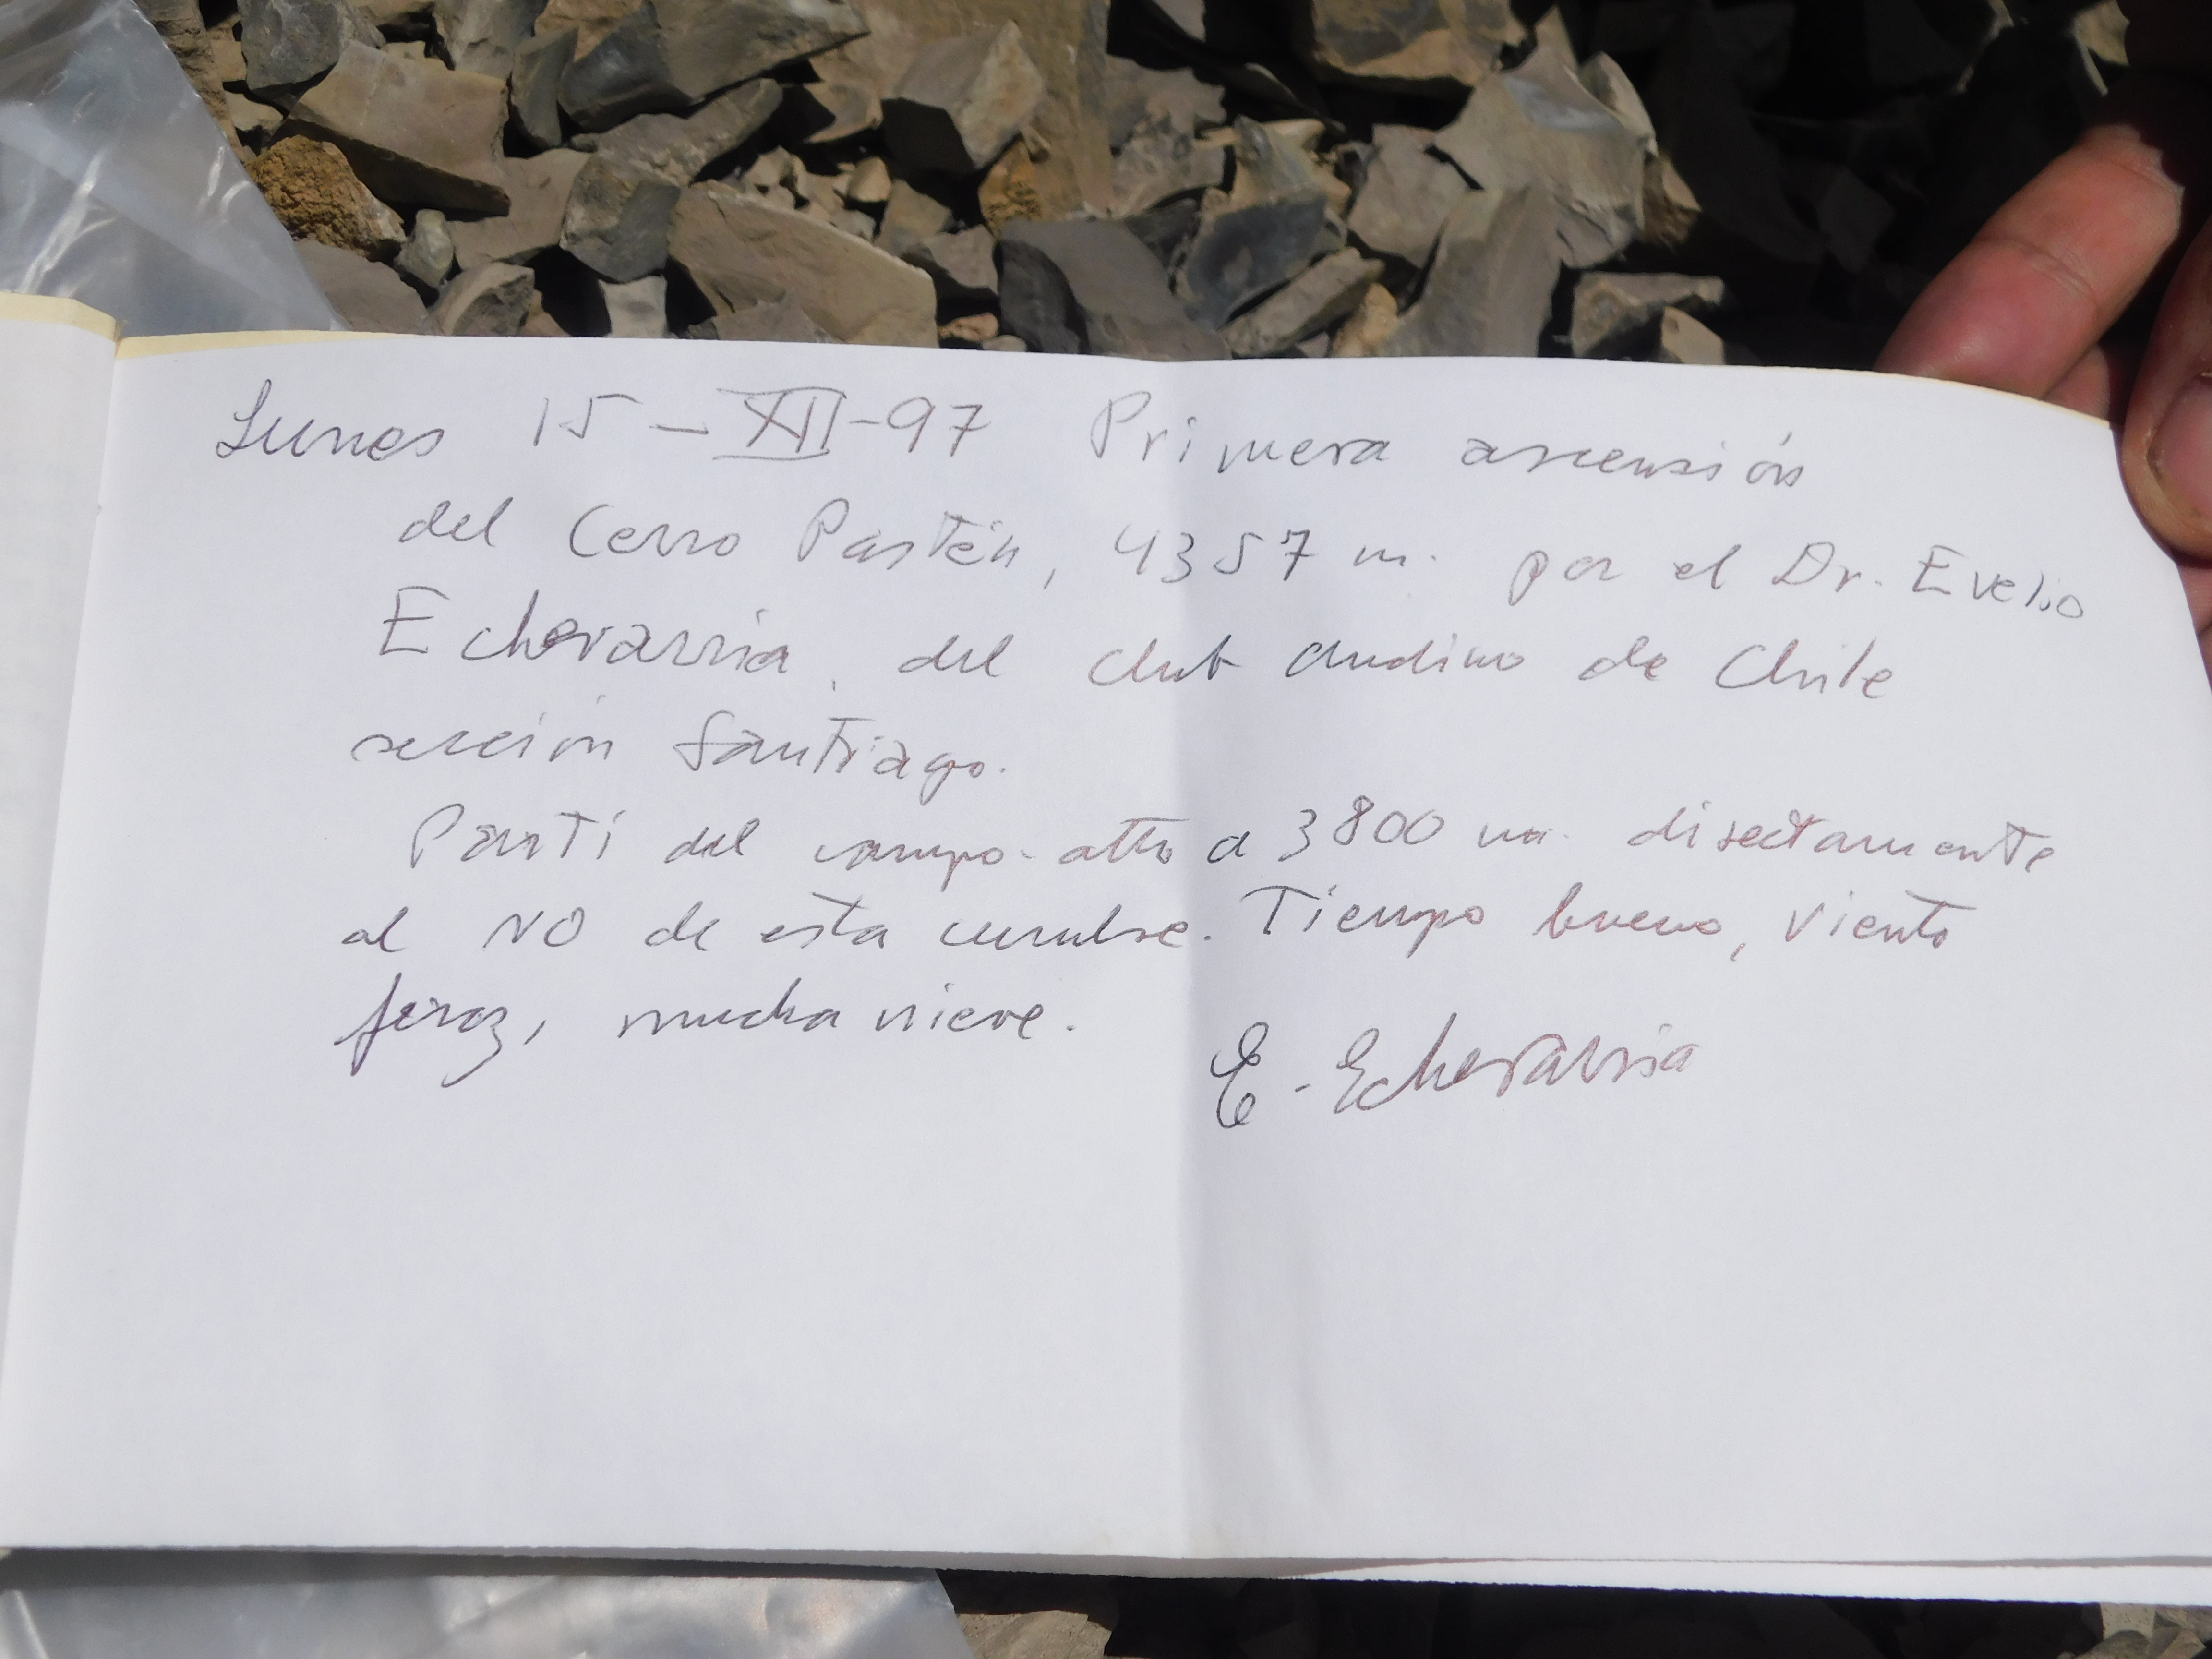 Lunes 15-XII-97 Primera ascensión
del Cerro Pastén, 4357 m. por el Dr. Evelio
Echevarría, del Club Andino de Chile
sección Santiago.
Partí del campo alto a 3800 m. directamente
al NO de esta cumbre. Tiempo bueno, viento
feroz, mucha nieve.
E. Echevarría